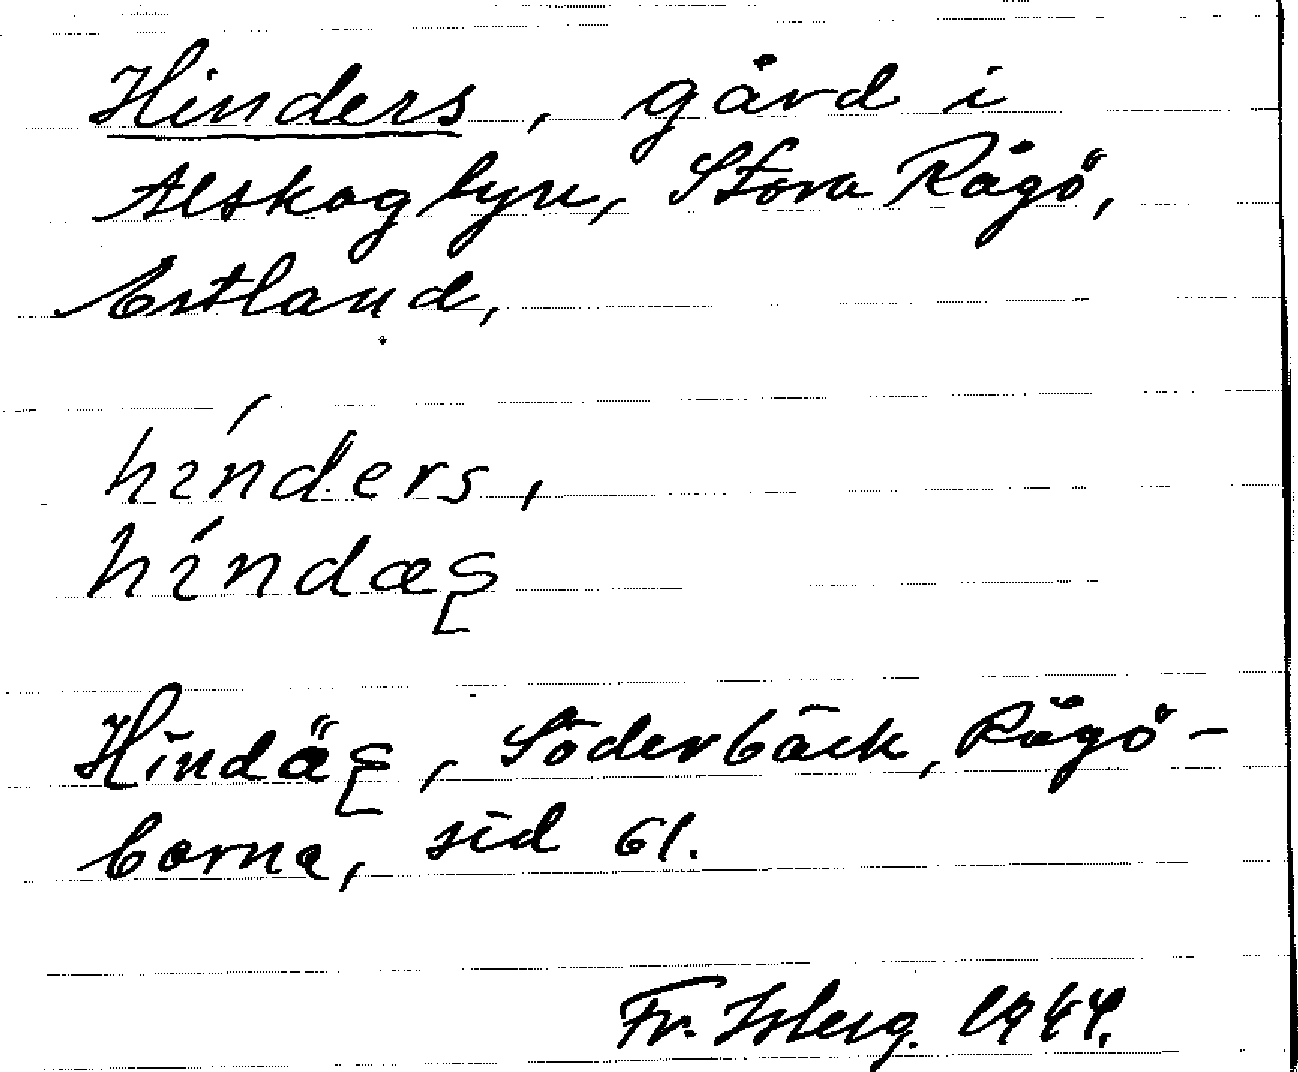 Hinders, gård i
Alskogbyn, Stora Rågö,
Estland,
hínders,
híndæʂ
Hindäʂ, Söderbäck, Rågö-
borna, sid 61.
Fr. Isberg. 1944.